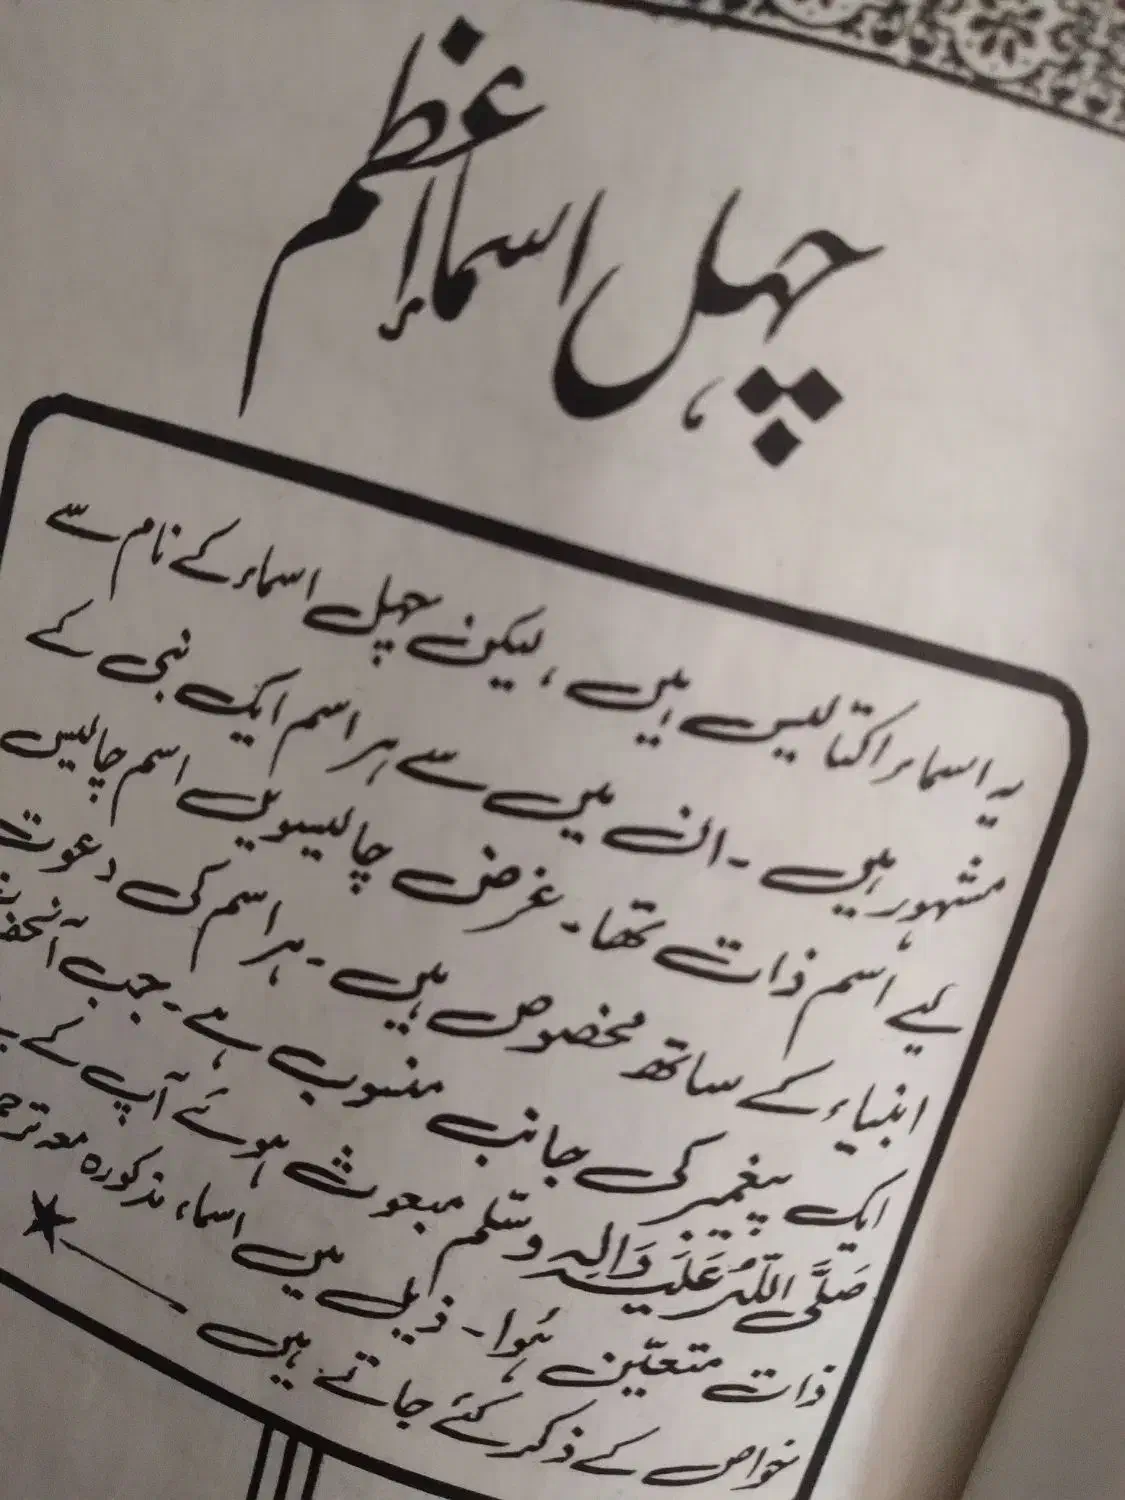 چہل اسماءِ اعظم
یہ اسماء اکتالیس ہیں، لیکن چہل اسماء کے نام سے
مشہور ہیں۔ ان میں سے ہر اسم ایک نبی کے
لیے اسم ذات تھا۔ غرض چالیسویں اسم چالیس
انبیاء کے ساتھ مخصوص ہیں۔ ہر اسم کی دعوت
ایک پیغمبر کی جانب منسوب ہے۔ جب آنحضرت
صَلَّی اللّٰہُ عَلَیْہِ وَاٰلِہٖ وسلّم مبعوث ہوئے آپ کے
ذات متعیّن ہُوا۔ ذیل میں اسماء مذکورہ معہ
خواص کے ذکر کئے جاتے ہیں۔